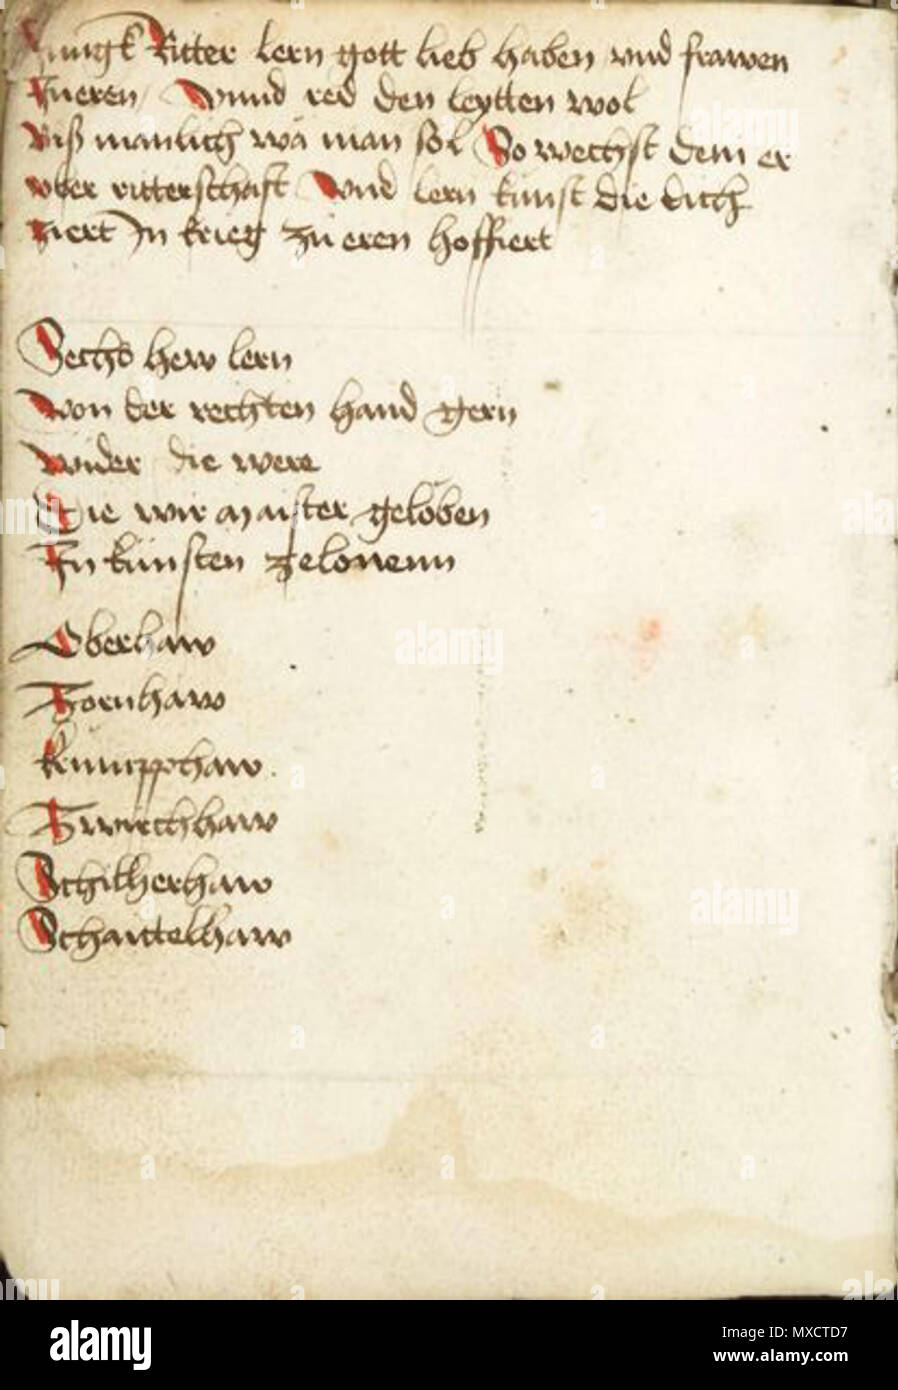 Jungk Ritter lern gott lieb haben vnd frawen
zu eren / Vnnd red den leytten wol
Biß manlich wa man sol So wechst dem er
vber ritterschaft Vnd lern kunst die dich
ziert In krieg zu eren hoffiert
Sechs hew lern
von der rechten hand gern
wider die were
Die wir maister geloben
In künsten ze lonenn
Oberhaw
Zornhaw
krumpphaw
Zwirchhaw
Schilherhaw
Schaittelhaw
alamy stock photo
MXCTD7
www.alamy.com